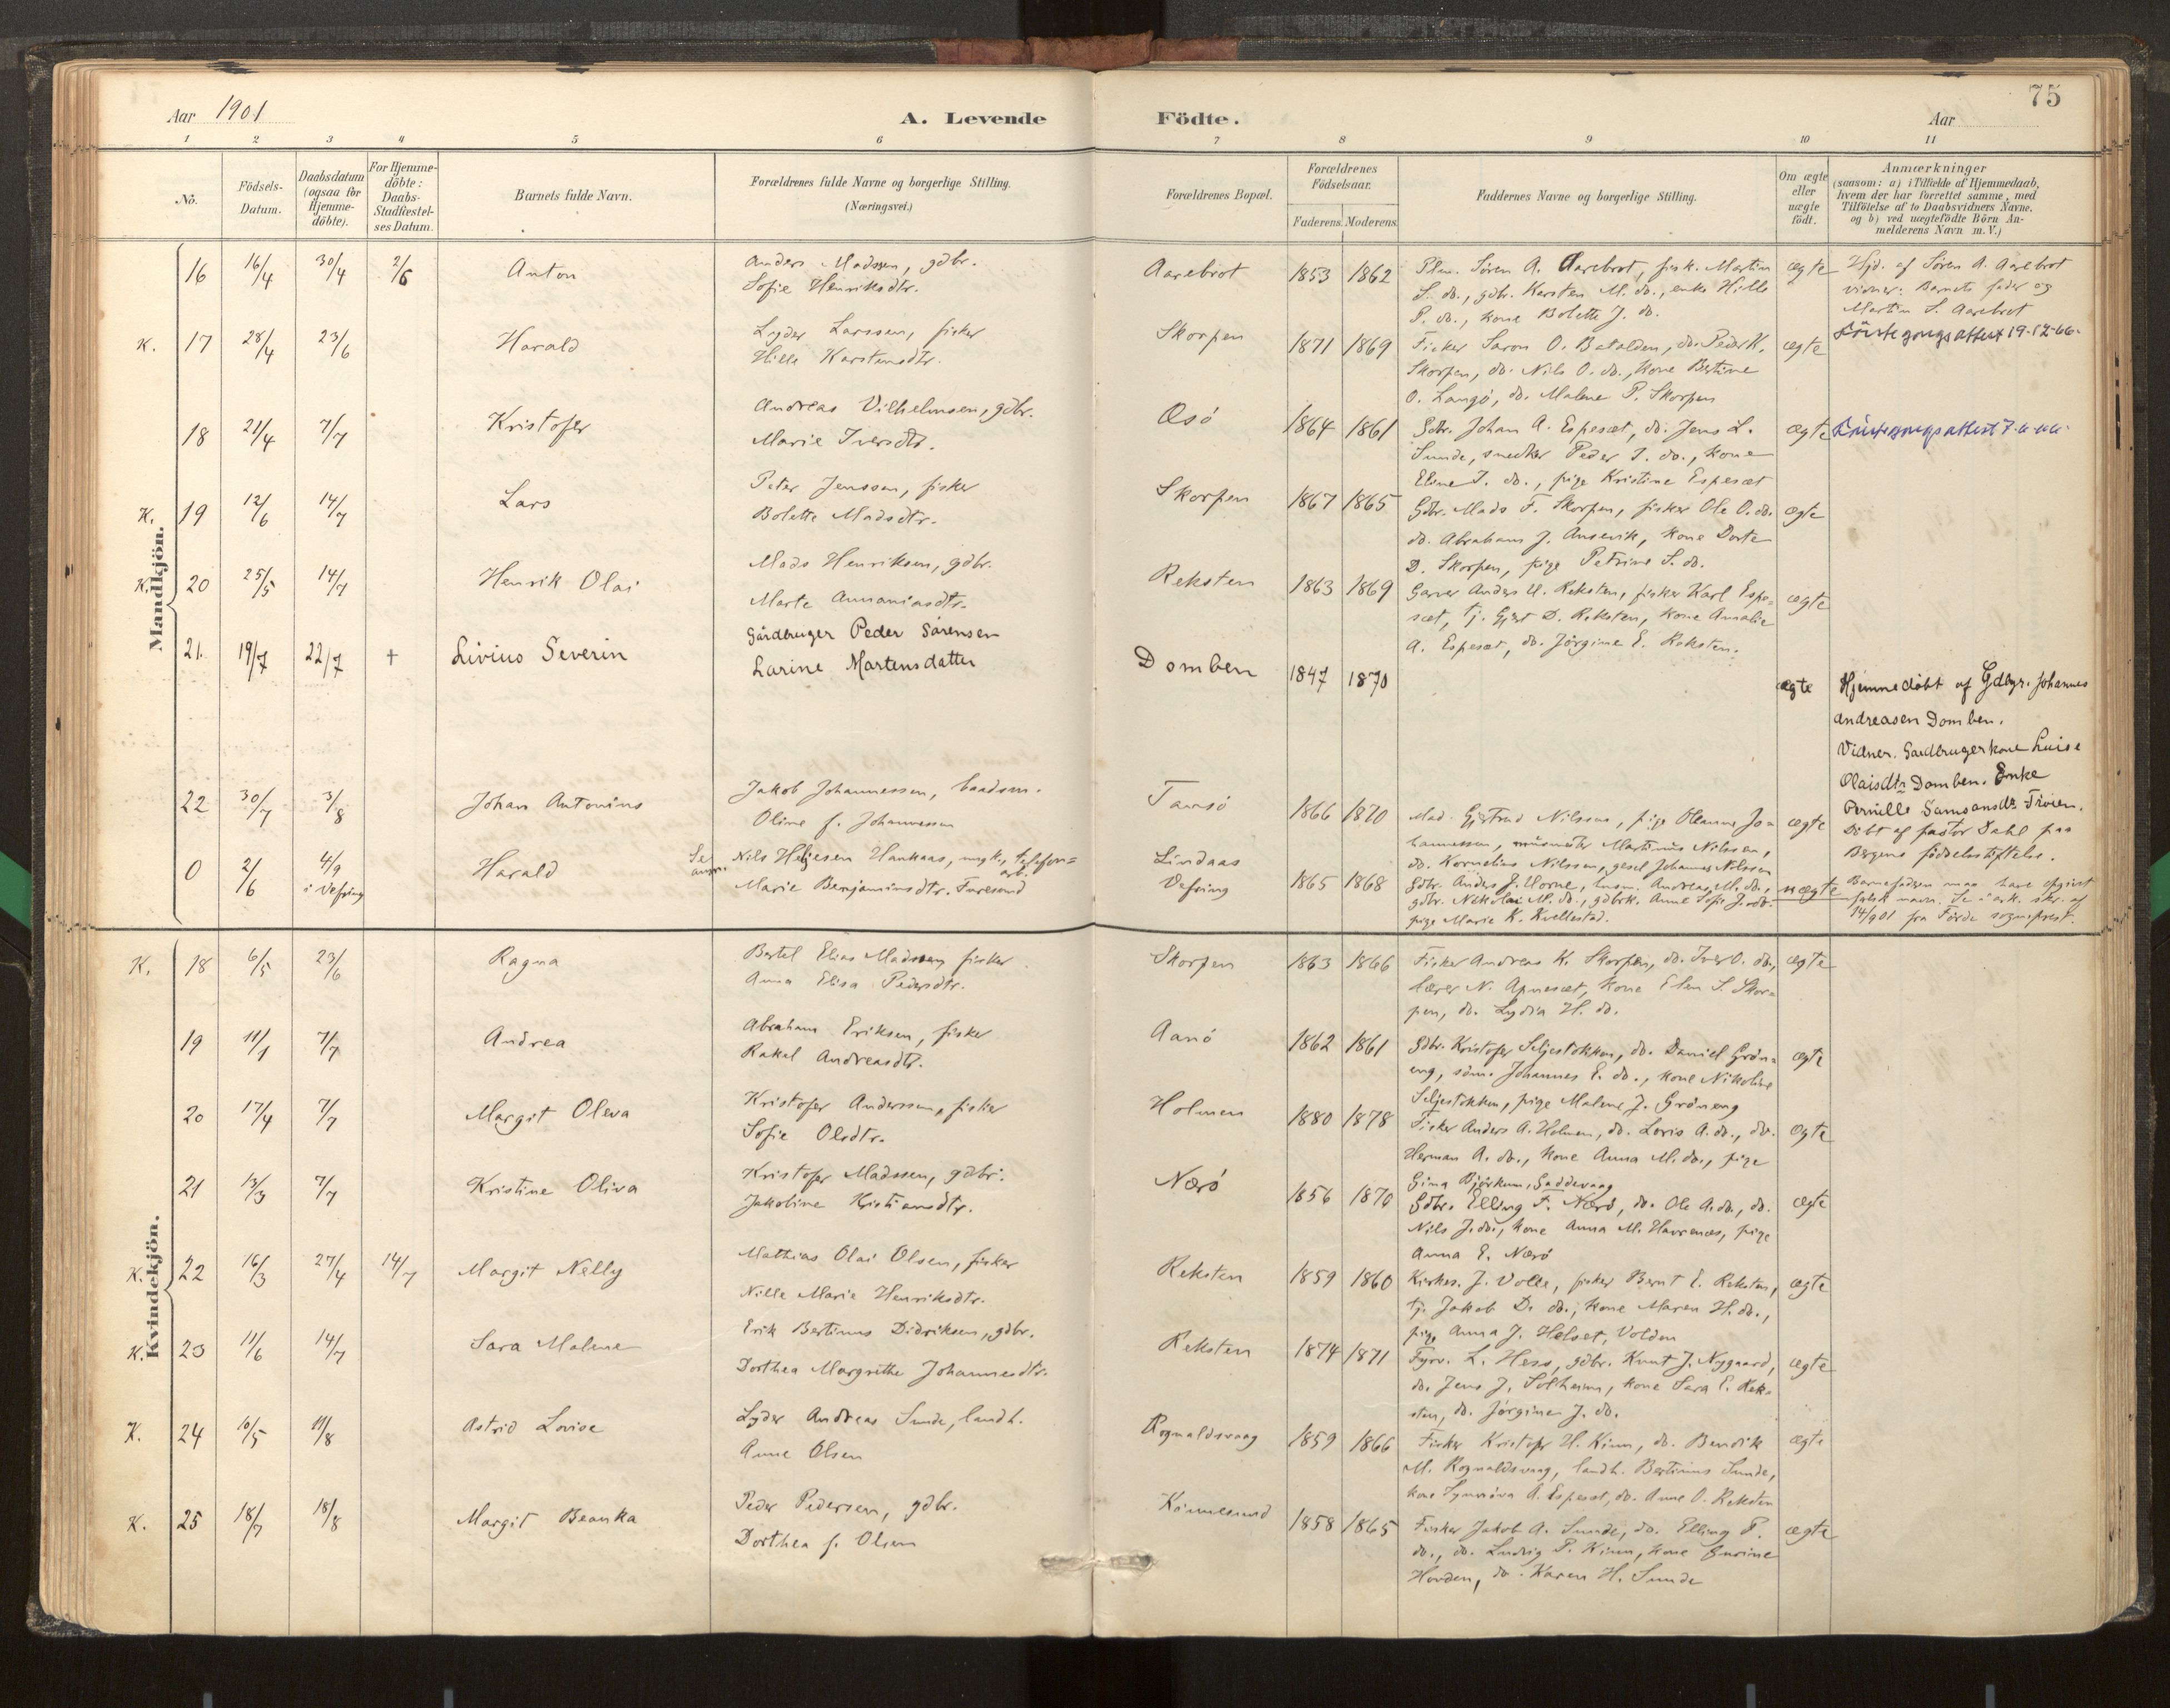 75
Aar 1901
A. Levende Födte.
Aar
1 2 3 4 5 6 7 8 9 10 11
No.
Födsels-Datum.
Daabsdatum (ogsaa for Hjemme-döbte).
For Hjemme-döbte: Daabs-Stadfæstel-ses Datum.
Barnets fulde Navn.
Forældrenes fulde Navne og borgerlige Stilling.
(Næringsvei.)
Forældrenes Bopæl.
Forældrenes Födselsaar.
Faderens. Moderens.
Faddernes Navne og borgerlige Stilling.
Om ægte eller uægte födt.
Anmærkninger
(saasom: a) i Tilfælde af Hjemmedaab, hvem der har forrettet samme, med Tilföielse af to Daabsvidners Navne, og b) ved uægtefödte Börn An-melderens Navn m. V.)
Mandkjön.
16 16/4 30/4 2/6 Anton
Anders Madssen, gdbr.
Sofie Henriksdtr.
Aarebrot 1853 1862
Søren A. Aarebrot, fisk. Martin
S. do., gdbr. Karsten M. do., enke Hille
P. do., kone Bolette J. do.
ægte
Hjd. af Sören A. Aarebrot
vidner: Barnets fader og
Martin S. Aarebrot
K. 17 28/4 23/6 Harald
Lyder Larssen, fisker
Hille Karstensdtr.
Skorpen 1871 1869
Fisker Saron O. Batalden, do. Peder K.
Skorpen, do. Nils O. do., kone Bertine
O. Langø, do. Malene P. Skorpen
ægte
19-12-66.
18 21/4 7/7 Kristofer
Andreas Vilhelmsen, gdbr.
Marie Iversdtr.
Osö 1864 1861
Gdbr. Johan A. Espesæt, do. Jens L.
Sunde, snedker Peder J. do., kone
Eline J. do., pige Kristine Espesæt
ægte
K. 19 12/6 14/7 Lars
Peter Jenssen, fisker
Bolette Madsdtr.
Skorpen 1867 1865
Gdbr. Mads F. Skorpen, fisker Ole O. do.
do. Abraham J. Ausevik, kone Dorte
D. Skorpen, pige Petrine S. do.
ægte
K. 20 25/5 14/7 Henrik Olai
Mads Henriksen, gdbr.
Marte Annaniasdtr.
Reksten 1863 1869
Garver Anders U. Reksten, fisker Karl Espe-
sæt, tj. Gjert D. Reksten, kone Annalie
A. Espesæt, do. Jörgine E. Reksten.
ægte
21. 19/7 22/7 + Livius Severin
Gårdbruger Peder Sørensen
Larine Martensdatter
Domben 1847 1870
ægte
Hjemmedöbt af Gdbgr. Johannes
Andreasen Domben.
Vidner. Gardbrugerkone Luise
Olaisdtr Domben. Enke
Pernille Samsonsdtr
22 30/7 3/8 Johan Antonius
Jakob Johannessen, baadsm.
Oline f. Johannessen
Tansö 1866 1870
Mad. Gjertrud Nilssen, pige Oleanna Jo-
hannessen, Martinus Nilssen,
do. Kornelius Nilssen, gesel Johannes Nilssen
ægte
Döbt af pastor Dahl paa
Bergens födselsstiftelse.
0 2/6 4/9 i Vefring Harald
Se anm.
Nils Hankaas, telefon-
arb.
Marie Benjaminsdtr. Furesund
Lindaas
Vefring
1865 1868
Gdbr. Anders J. Horne, husm. Andreas M. do.,
gdbr. Nikolai M. do., gdbrk. Anne Sofie J. do.
pige Marie K. Kvellestad.
uægte
Barnefaderen maa have opgivet
falsk navn. Se i ark. skr. af
14/9 01 fra Förde sogneprest.
Kvindekjön.
K. 18 6/5 23/6 Ragna
Bertel Elias Madssen, fisker
Anna Elisa Pedersdtr.
Skorpen 1863 1866
Fisker Andreas K. Skorpen, do. Iver O. do.,
lærer N. Apnesæt, kone Elen S. Skor-
pen, do. Lydia H. do.
ægte
19 11/1 7/7 Andrea
Abraham Eriksen, fisker
Rakel Andreasdtr.
Aanö 1862 1861
Gdbr. Kristofer Seljestokken, do. Daniel Grön-
eng, söm. Johannes E. do., kone Nikoline
Seljestokken, pige Malene J. Gröneng
ægte
20 17/4 7/7 Margit Oleva
Kristofer Anderssen, fisker
Sofie Olsdtr.
Holmen 1880 1878
Fisker Anders A. Holmen, do. Loris A. do., do.
Herman A. do., kone Anna M. do., pige
Gina Björkum, Gaddevaag
ægte
21 13/3 7/7 Kristine Oliva
Kristofer Madssen, gdbr.
Jakobine Kristiansdtr.
Nærö 1856 1870
Gdbr. Elling F. Nærö, do. Ole A. do., do.
Nils J. do., kone Anna M. Havrenæs, pige
Anna E. Nærö
ægte
K. 22 16/3 27/4 14/7 Margit Nelly
Mathias Olai Olsen, fisker
Nille Marie Henriksdtr.
Reksten 1859 1860
Kirkes. J. Volle, fisker Bernt E. Reksten,
tj. Jakob D. do., kone Maren H. do.,
pige Anna J. Helset, Volden
ægte
K. 23 11/6 14/7 Sara Malene
Erik Bertinus Didriksen, gdbr.
Dorthea Margrethe Johannesdtr.
Reksten 1874 1871
Fyrv. L. Hess, gdbr. Knut J. Nygaard,
do. Jens J. Solheim, kone Sara E. Rek-
sten, do. Jörgine J. do.
ægte
K. 24 10/5 11/8 Astrid Lovise
Lyder Andreas Sunde, landh.
Anne Olsen
Rognaldsvaag 1859 1866
Fisker Kristofer H. Kinn, do. Bendik
M. Rognaldsvaag, landh. Bertinus Sunde,
kone Synneva A. Espeset, do. Anne O. Reksten
ægte
K. 25 18/7 18/8 Margit Beanka
Peder Pedersen, gdbr.
Dorthea f. Olsen
1858 1865
Fisker Jakob A. Sunde, do. Elling P.
do., do. Ludvig P. Kinn, kone Gurine
Hovden, do. Karen H. Sunde
ægte